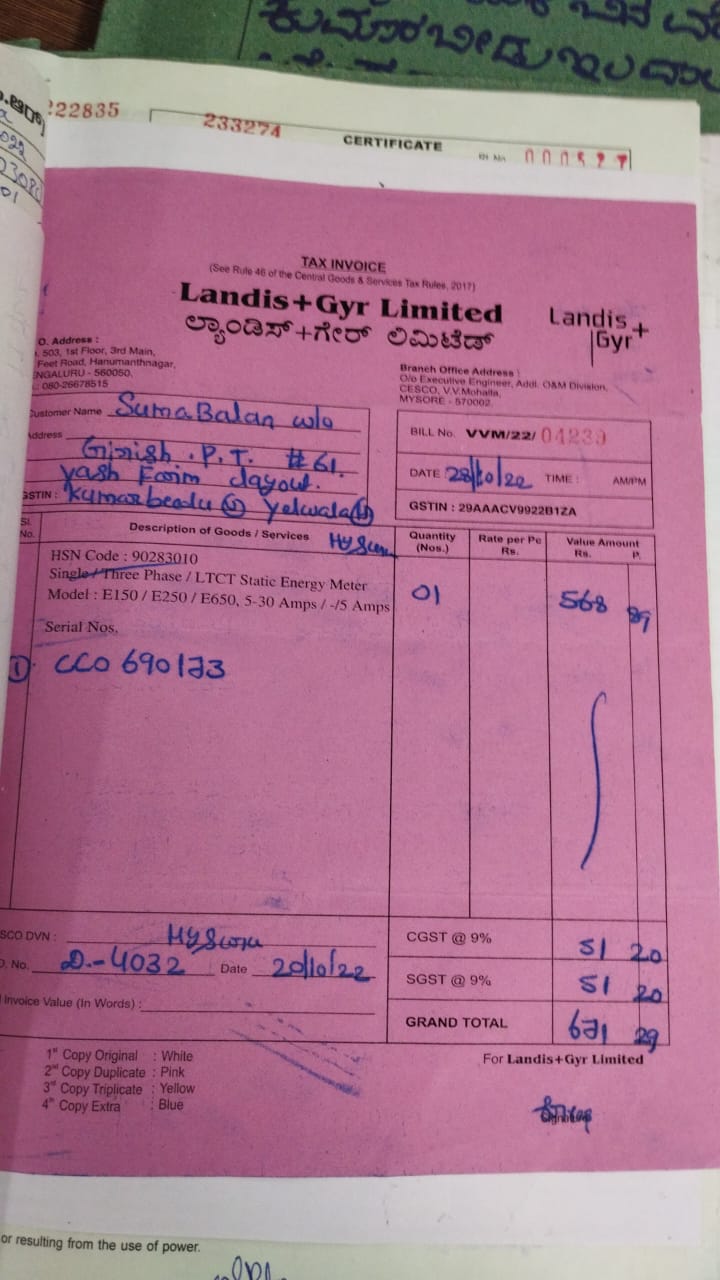 ಕುಮಾರಬೀಡು ಇಲವಾಲ
222835
233274
CERTIFICATE
TAX INVOICE
(See Rule 46 of the Central Goods & Services Tax Rules, 2017)
Landis+Gyr Limited
ಲ್ಯಾಂಡಿಸ್+ಗೇರ್ ಲಿಮಿಟೆಡ್
Landis+
Gyr
O. Address :
503, 1st Floor, 3rd Main,
Feet Road, Hanumanthnagar,
ENGALURU - 560050.
: 080-26678515
Branch Office Address :
O/o Executive Engineer, Addl. O&M Division,
CESCO, V.V.Mohalla,
MYSORE - 570002.
Customer Name Suma Balan w/o
Address Girish . P. T. #61,
yash Farm layout.
GSTIN : kumarbeedu (V) yelwala (H)
BILL No. VVM/22/ 04239
DATE : 28/10/22 TIME : AM/PM
GSTIN : 29AAACV9922B1ZA
Sl. No. Description of Goods / Services Quantity (Nos.) Rate per Pe Rs. Value Amount Rs. P.
HSN Code : 90283010
Single / Three Phase / LTCT Static Energy Meter
Model : E150 / E250 / E650, 5-30 Amps / -/5 Amps
01 568 89
Serial Nos.
1. CCO 690173
SCO DVN : Mysore
O. No. D.-4032 Date 20/10/22
Invoice Value (In Words) :
CGST @ 9% 51 20
SGST @ 9% 51 20
GRAND TOTAL 671 29
1st Copy Original : White
2nd Copy Duplicate : Pink
3rd Copy Triplicate : Yellow
4th Copy Extra : Blue
For Landis+Gyr Limited
or resulting from the use of power.